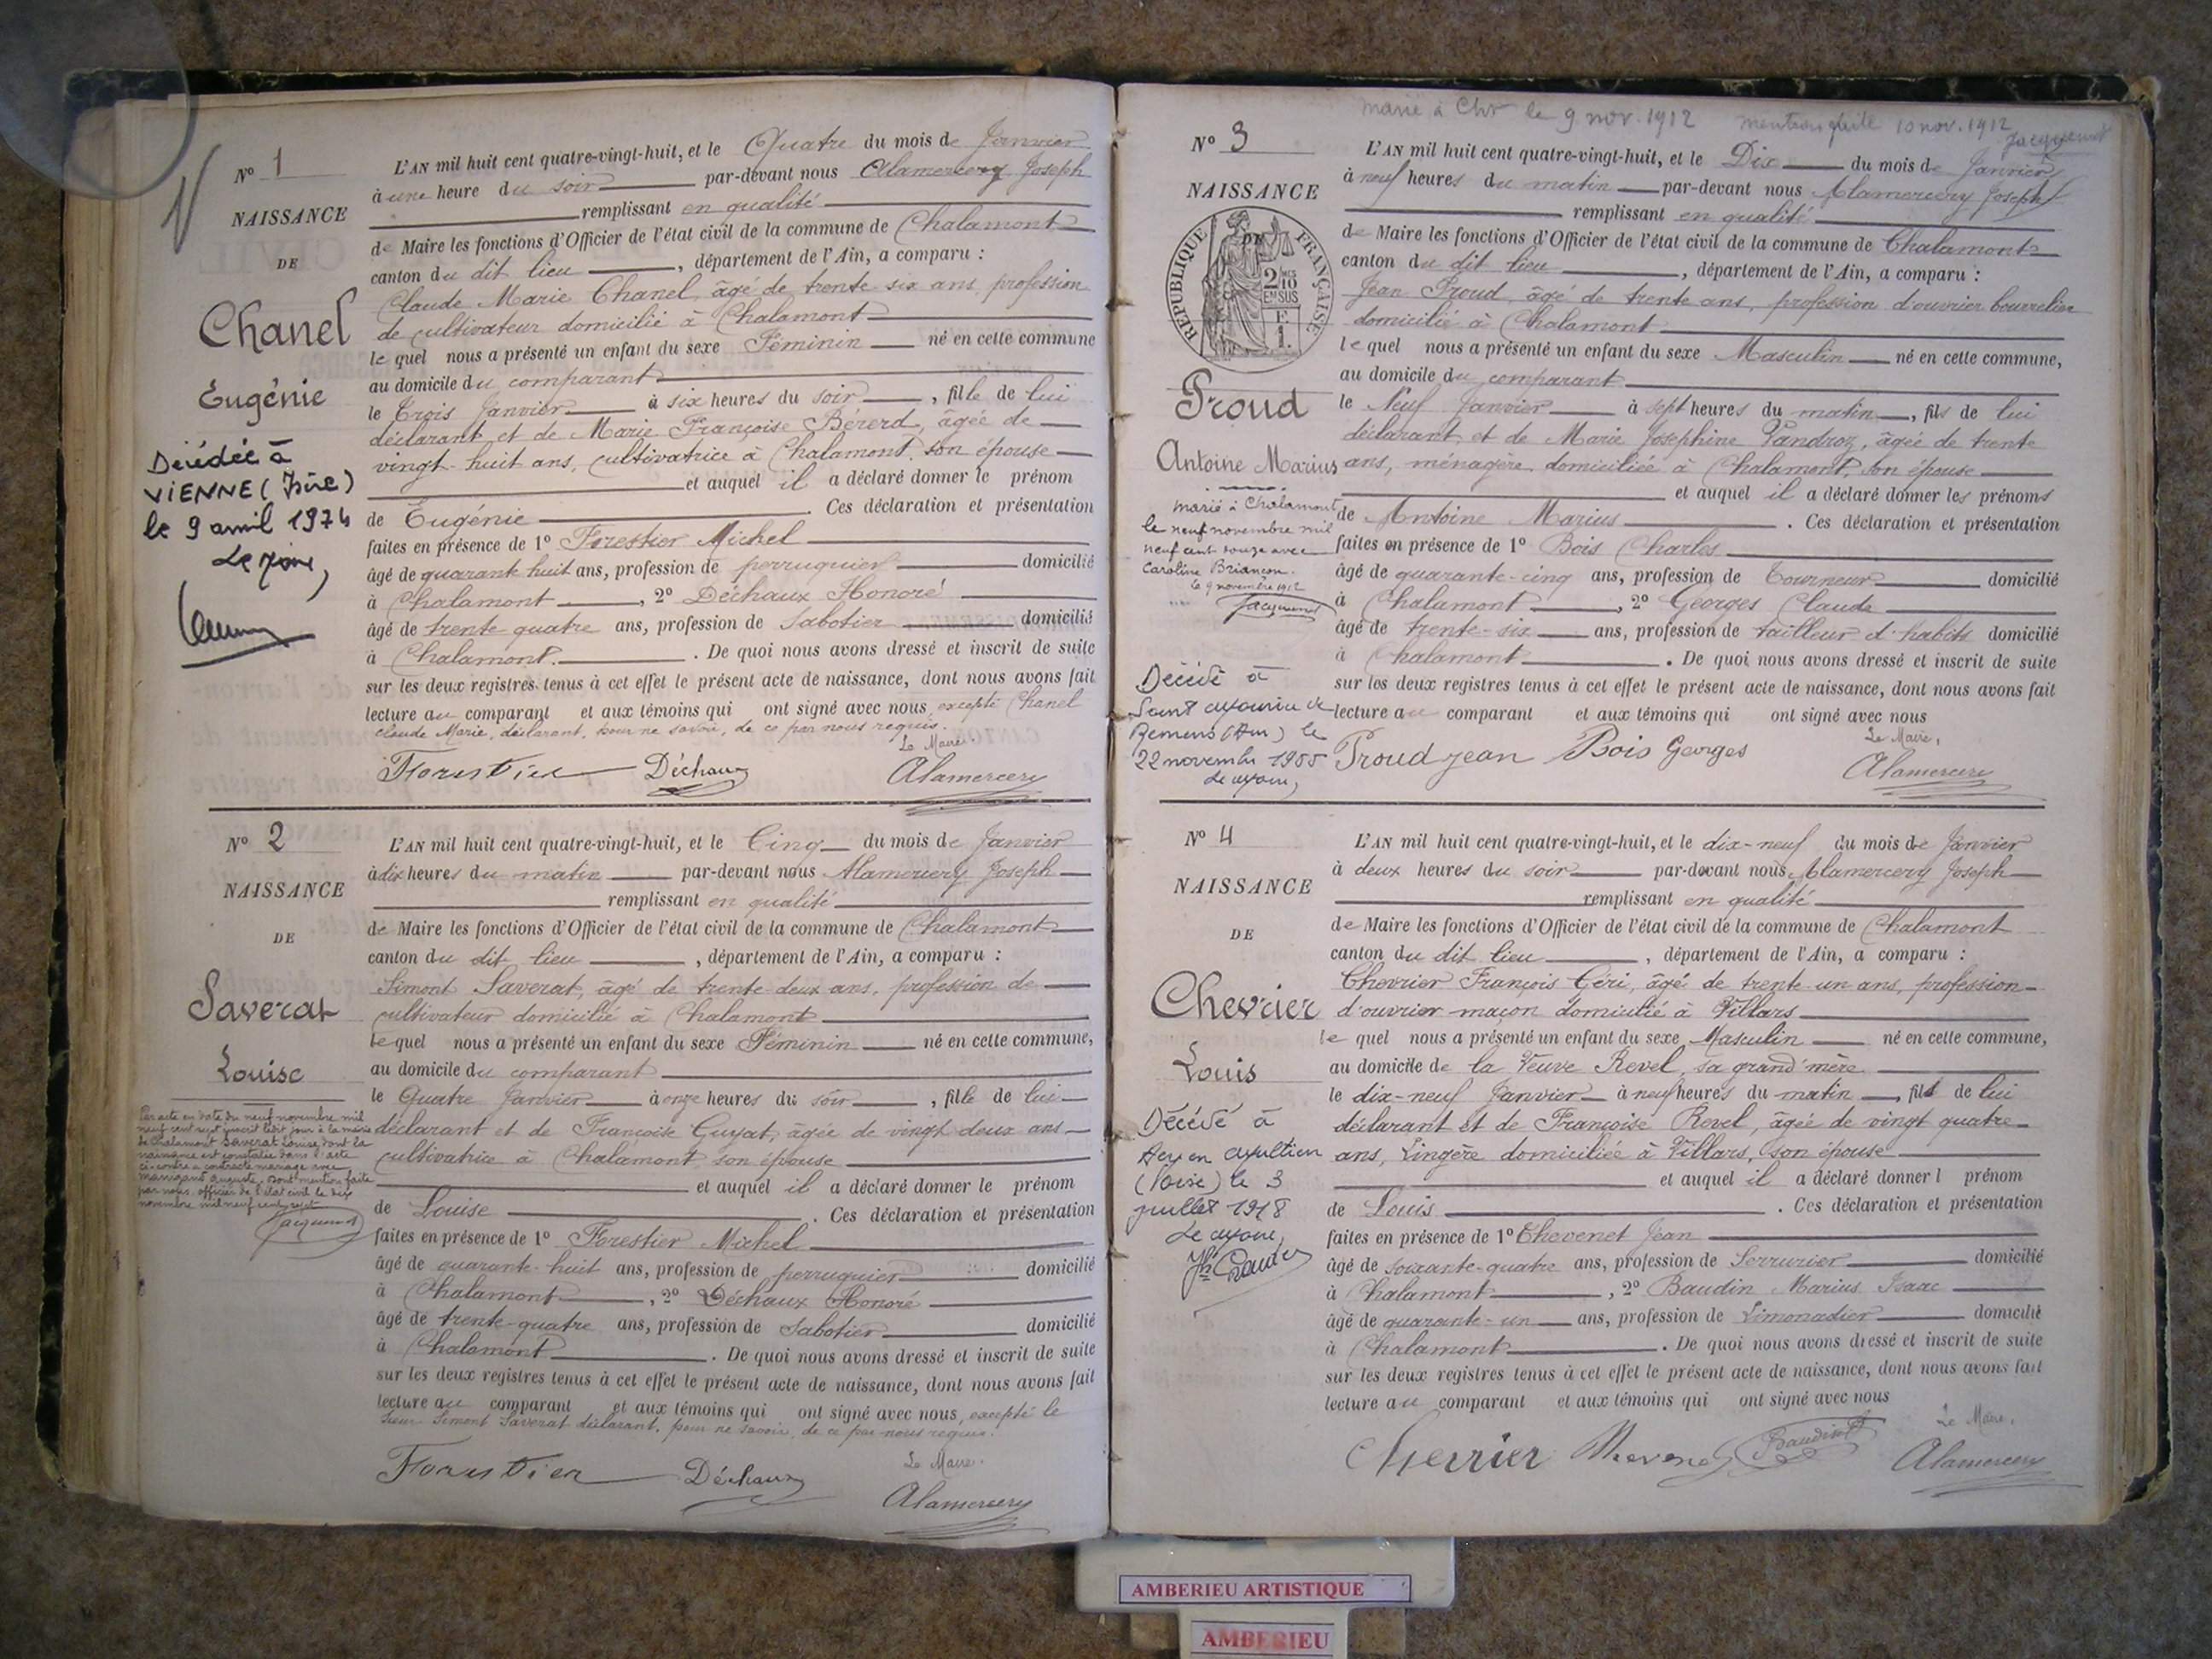 Nº 1
NAISSANCE
DE
Chanel
Eugénie
Décédée à
VIENNE (Isère)
le 9 avril 1974
Le Maire,
L'AN mil huit cent quatre-vingt-huit, et le Quatre du mois de Janvier
à une heure du soir par-devant nous Alamercery Joseph
remplissant en qualité
de Maire les fonctions d'Officier de l'état civil de la commune de Chalamont
canton du dit lieu, département de l'Ain, a comparu :
Claude Marie Chanel, âgé de trente six ans, profession
de cultivateur domicilié à Chalamont
le quel nous a présenté un enfant du sexe Féminin né en cette commune
au domicile du comparant
le Trois Janvier à six heures du soir, fille de lui
déclarant et de Marie Françoise Bérerd, âgée de
vingt-huit ans, cultivatrice à Chalamont, son épouse
et auquel il a déclaré donner le prénom
de Eugénie. Ces déclaration et présentation
faites en présence de 1º Forestier Michel
âgé de quarante huit ans, profession de perruquier domicilié
à Chalamont, 2º Déchaux Honoré
âgé de trente-quatre ans, profession de Sabotier domicilié
à Chalamont. De quoi nous avons dressé et inscrit de suite
sur les deux registres tenus à cet effet le présent acte de naissance, dont nous avons fait
lecture au comparant et aux témoins qui ont signé avec nous, excepté Chanel
Claude Marie, déclarant, pour ne savoir, de ce par nous requis.
Le Maire.
Forestier Déchaux Alamercery
Nº 2
NAISSANCE
DE
Saverat
Louise
Par acte en date du neuf novembre mil
neuf cent sept inscrit ledit jour à la mairie
de Chalamont Saverat Louise dont la
naissance est constatée dans l'acte
ci-contre a contracté mariage avec
Manigand Auguste. Dont mention faite
par nous, officier de l'état civil le dix
novembre mil neuf cent sept
Jacquemet
L'AN mil huit cent quatre-vingt-huit, et le Cinq du mois de Janvier
à dix heures du matin par-devant nous Alamercery Joseph
remplissant en qualité
de Maire les fonctions d'Officier de l'état civil de la commune de Chalamont
canton du dit lieu, département de l'Ain, a comparu :
Simont Saverat, âgé de trente deux ans, profession de
cultivateur domicilié à Chalamont
le quel nous a présenté un enfant du sexe Féminin né en cette commune,
au domicile du comparant
le Quatre Janvier à onze heures du soir, fille de lui
déclarant et de Françoise Guyat, âgée de vingt deux ans
cultivatrice à Chalamont, son épouse
et auquel il a déclaré donner le prénom
de Louise. Ces déclaration et présentation
faites en présence de 1º Forestier Michel
âgé de quarante-huit ans, profession de perruquier domicilié
à Chalamont, 2º Déchaux Honoré
âgé de trente-quatre ans, profession de Sabotier domicilié
à Chalamont. De quoi nous avons dressé et inscrit de suite
sur les deux registres tenus à cet effet le présent acte de naissance, dont nous avons fait
lecture au comparant et aux témoins qui ont signé avec nous, excepté le
sieur Simont Saverat déclarant, pour ne savoir, de ce par nous requis.
Le Maire.
Forestier Déchaux Alamercery
marié à Chr le 9 nov. 1912 mention faite 10 nov. 1912
Jacquemet
Nº 3
NAISSANCE
DE
RÉPUBLIQUE FRANÇAISE
2/10 EN SUS
F.
1.
Proud
Antoine Marius
marié à Chalamont
le neuf novembre mil
neuf cent douze avec
Caroline Briançon.
le 9 novembre 1912
Jacquemet
Décédé à
Saint Maurice de
Remens (Ain) le
22 novembre 1955
Le Maire,
L'AN mil huit cent quatre-vingt-huit, et le Dix du mois de Janvier
à neuf heures du matin par-devant nous Alamercery Joseph
remplissant en qualité
de Maire les fonctions d'Officier de l'état civil de la commune de Chalamont
canton du dit lieu, département de l'Ain, a comparu :
Jean Proud, âgé de trente ans, profession d'ouvrier bourrelier
domicilié à Chalamont
le quel nous a présenté un enfant du sexe Masculin né en cette commune,
au domicile du comparant
le Neuf Janvier à sept heures du matin, fils de lui
déclarant et de Marie Josephine Pandroz, âgée de trente
ans, ménagère domiciliée à Chalamont, son épouse
et auquel il a déclaré donner les prénoms
de Antoine Marius. Ces déclaration et présentation
faites en présence de 1º Bois Charles
âgé de quarante-cinq ans, profession de Tourneur domicilié
à Chalamont, 2º Georges Claude
âgé de trente-six ans, profession de tailleur d'habits domicilié
à Chalamont. De quoi nous avons dressé et inscrit de suite
sur les deux registres tenus à cet effet le présent acte de naissance, dont nous avons fait
lecture au comparant et aux témoins qui ont signé avec nous
Le Maire,
Proud jean Bois Georges Alamercery
Nº 4
NAISSANCE
DE
Chevrier
Louis
Décédé à
(Oise) le 3
juillet 1918
Le Maire,
L'AN mil huit cent quatre-vingt-huit, et le dix-neuf du mois de Janvier
à deux heures du soir par-devant nous Alamercery Joseph
remplissant en qualité
de Maire les fonctions d'Officier de l'état civil de la commune de Chalamont
canton du dit lieu, département de l'Ain, a comparu :
Chevrier François Géri, âgé de trente-un ans, profession
d'ouvrier maçon domicilié à Villars
le quel nous a présenté un enfant du sexe Masculin né en cette commune,
au domicile de la Veuve Revel, sa grand'mère
le dix-neuf Janvier à neuf heures du matin, fils de lui
déclarant et de Françoise Revel, âgée de vingt quatre
ans, Lingère domiciliée à Villars, son épouse
et auquel il a déclaré donner l prénom
de Louis. Ces déclaration et présentation
faites en présence de 1º Thevenet Jean
âgé de soixante-quatre ans, profession de Serrurier domicilié
à Chalamont, 2º Baudin Marius Isaac
âgé de quarante-un ans, profession de Limonadier domicilié
à Chalamont. De quoi nous avons dressé et inscrit de suite
sur les deux registres tenus à cet effet le présent acte de naissance, dont nous avons fait
lecture au comparant et aux témoins qui ont signé avec nous
Le Maire,
Chevrier Thevenet Baudin Alamercery
AMBERIEU ARTISTIQUE
AMBERIEU